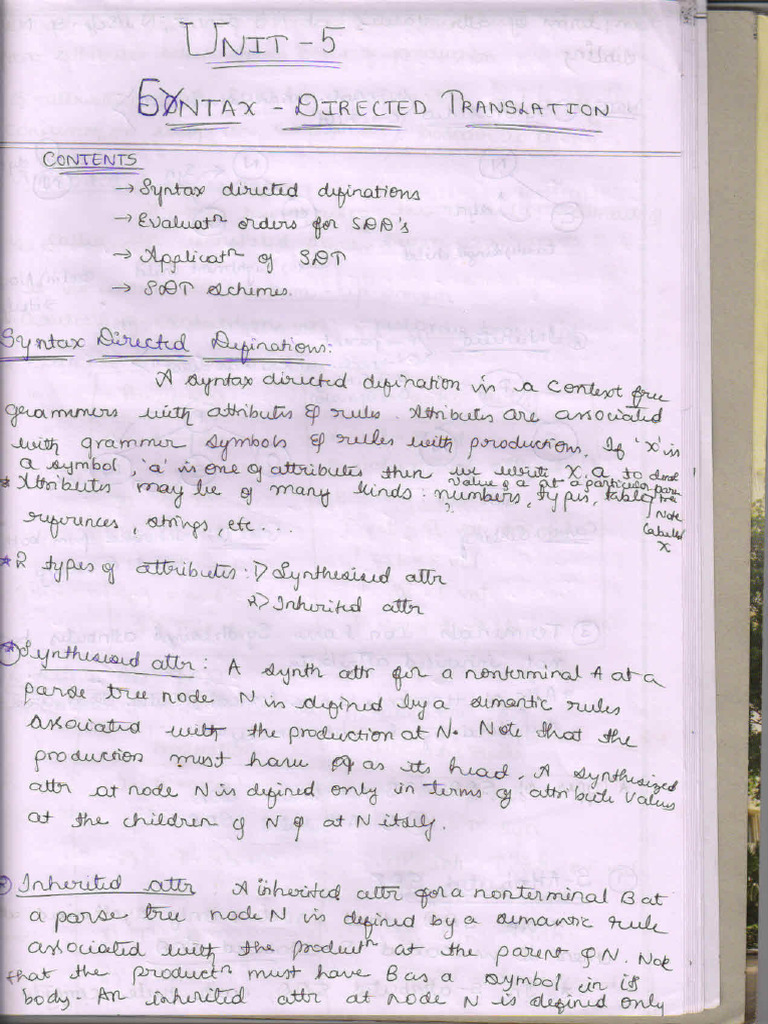 UNIT - 5
SYNTAX - DIRECTED TRANSLATION
CONTENTS
→ Syntax directed definations
→ Evaluatn orders for SDD's
→ Applicatn of SDT
→ SDT schemes.
Syntax Directed Definations:
A syntax directed defination is a context free
grammers with attributes & rules. Attributes are associated
with grammer symbols & rules with productions. If 'x' is
a symbol, 'a' is one of attributes then we write X.a to
value of a at a particular
* Attributes may be of many kinds: numbers, types, table
Node
labeled
X
references, strings, etc...
* 2 types of attributes: 1) Synthesised attr
2) Inherited attr
* Synthesised attr: A synth attr for a nonterminal A at a
parse tree node N is defined by a simantic rules
associated with the production at N. Note that the
production must have A as its head. A synthesized
attr at node N is defined only in terms of attribute values
at the children of N & at N itself.
Inherited attr A inherited attr for a nonterminal B at
a parse tree node N is defined by a semantic rule
associated with the productn at the parent of N. Note
that the productn must have B as a symbol in its
body. An inherited attr at node N is defined only